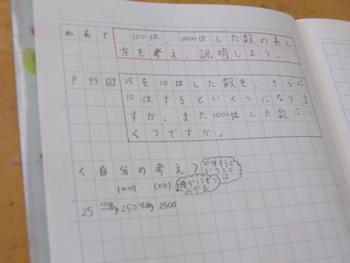 めあて 100倍、1000倍した数の表し
方を考え、説明しよう。
P 95 図 25を10倍した数を、さらに
10倍するといくつになりま
すか。また1000倍した数はい
くつですか。
く自分の考え>
10倍すると
いうこと
は
(×10) (×10)
25 → 250 → 2500